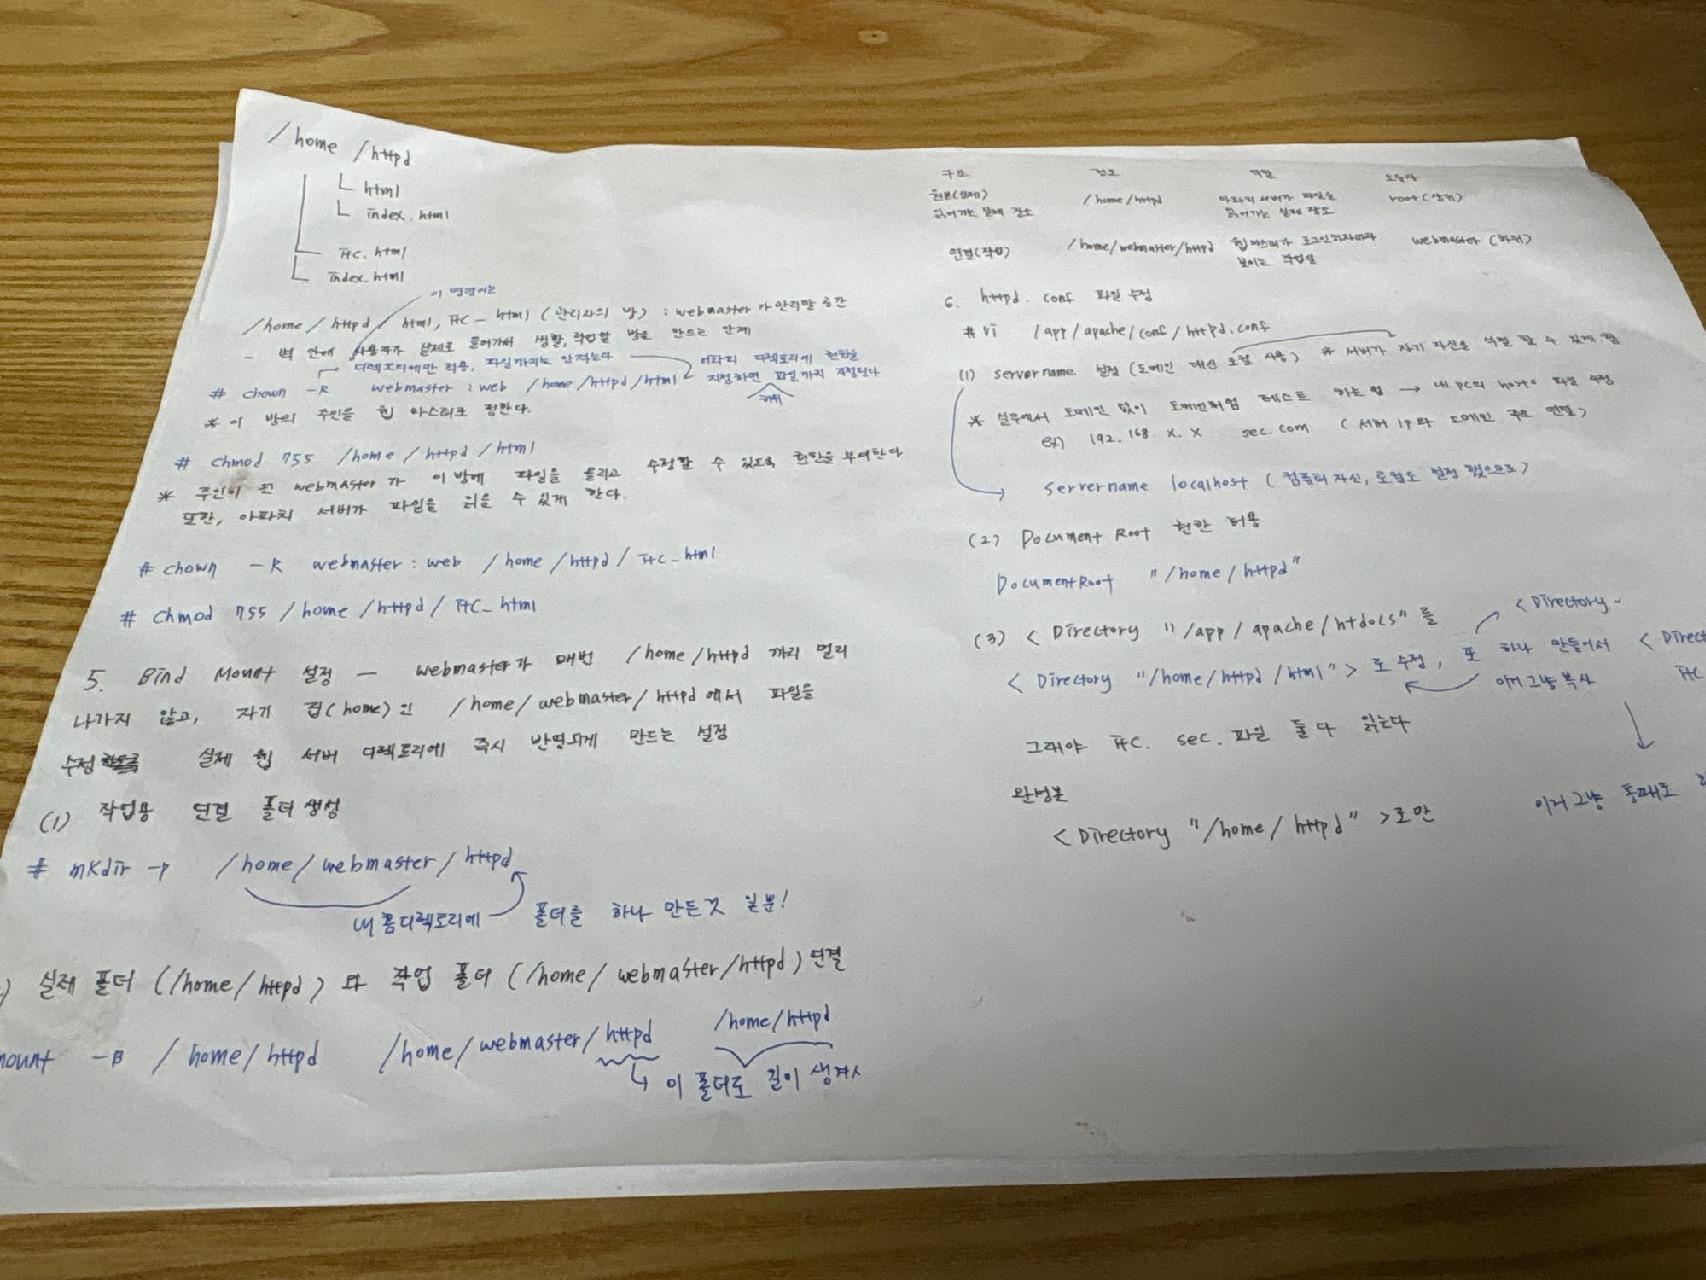 /home /httpd
└ html
└ index.html
itc.html
index.html
이 명령어는
/home/httpd/ html, itc_html (관리자의 방) : webmaster가 관리할 공간
- 벽 안에 사용자가 실제로 들어가서 생활, 작업할 방을 만드는 단계
디렉토리에만 적용, 파일까지는 안적는다
# chown -R webmaster : web /home/httpd/html
디렉토리에 권한을
지정하면 파일까지 지정된다
* 이 방의 주인을 웹 마스터로 정한다.
# chmod 755 /home/httpd/html
* 주인이 된 webmaster가 이 방에 파일을 올리고 수정할 수 있도록 권한을 부여한다
또한, 아파치 서버가 파일을 읽을 수 있게 한다.
# chown -R webmaster : web /home/httpd/ itc_html
# chmod 755 /home/httpd/ itc_html
5. Bind Mount 설정 — webmaster가 매번 /home/httpd 까지 멀리
나가지 않고, 자기 집(home)인 /home/webmaster/httpd에서 파일을
수정 실제 웹 서버 디렉토리에 즉시 반영되게 만드는 설정
(1) 작업용 연결 폴더 생성
# mkdir -p /home/webmaster/httpd
내 홈디렉토리에 폴더를 하나 만든것 일뿐!
) 실제 폴더 (/home/httpd) 와 작업 폴더 (/home/webmaster/httpd) 연결
mount -B /home/httpd /home/webmaster/httpd
/home/httpd
이 폴더로 길이 생겨서
구분 경로 역할 소유자
원본(실제) /home/httpd 아파치 서버가 파일을 root(상위)
읽어가는 실제 장소 읽어가는 실제 장소
연결(작업) /home/webmaster/httpd 웹마스터가 로그인하자마자 webmaster (하위)
보이는 작업실
6. httpd.conf 파일 수정
# vi /app/apache/conf/httpd.conf
(1) servername 설정 (도메인 대신 로컬 사용) * 서버가 자기 자신을 식별 할 수 있게 함
* 실무에서 도메인 없이 도메인처럼 테스트 하는 법 → 내 pc의 hosts 파일 수정
ex) 192.168.x.x sec.com (서버 ip와 도메인 주소 연결)
servername localhost (컴퓨터 자신, 로컬로 설정 했으므로)
(2) Document Root 권한 허용
DocumentRoot "/home/httpd"
(3) < Directory "/app/apache/htdocs" 를
< Directory ~
< Directory "/home/httpd/html"> 로 수정, 또 하나 만들어서 < Direct
이거 그냥 복사
itc
그래야 itc. sec. 파일 둘 다 읽는다
완성본
< Directory "/home/httpd" >로만
이거 그냥 통째로